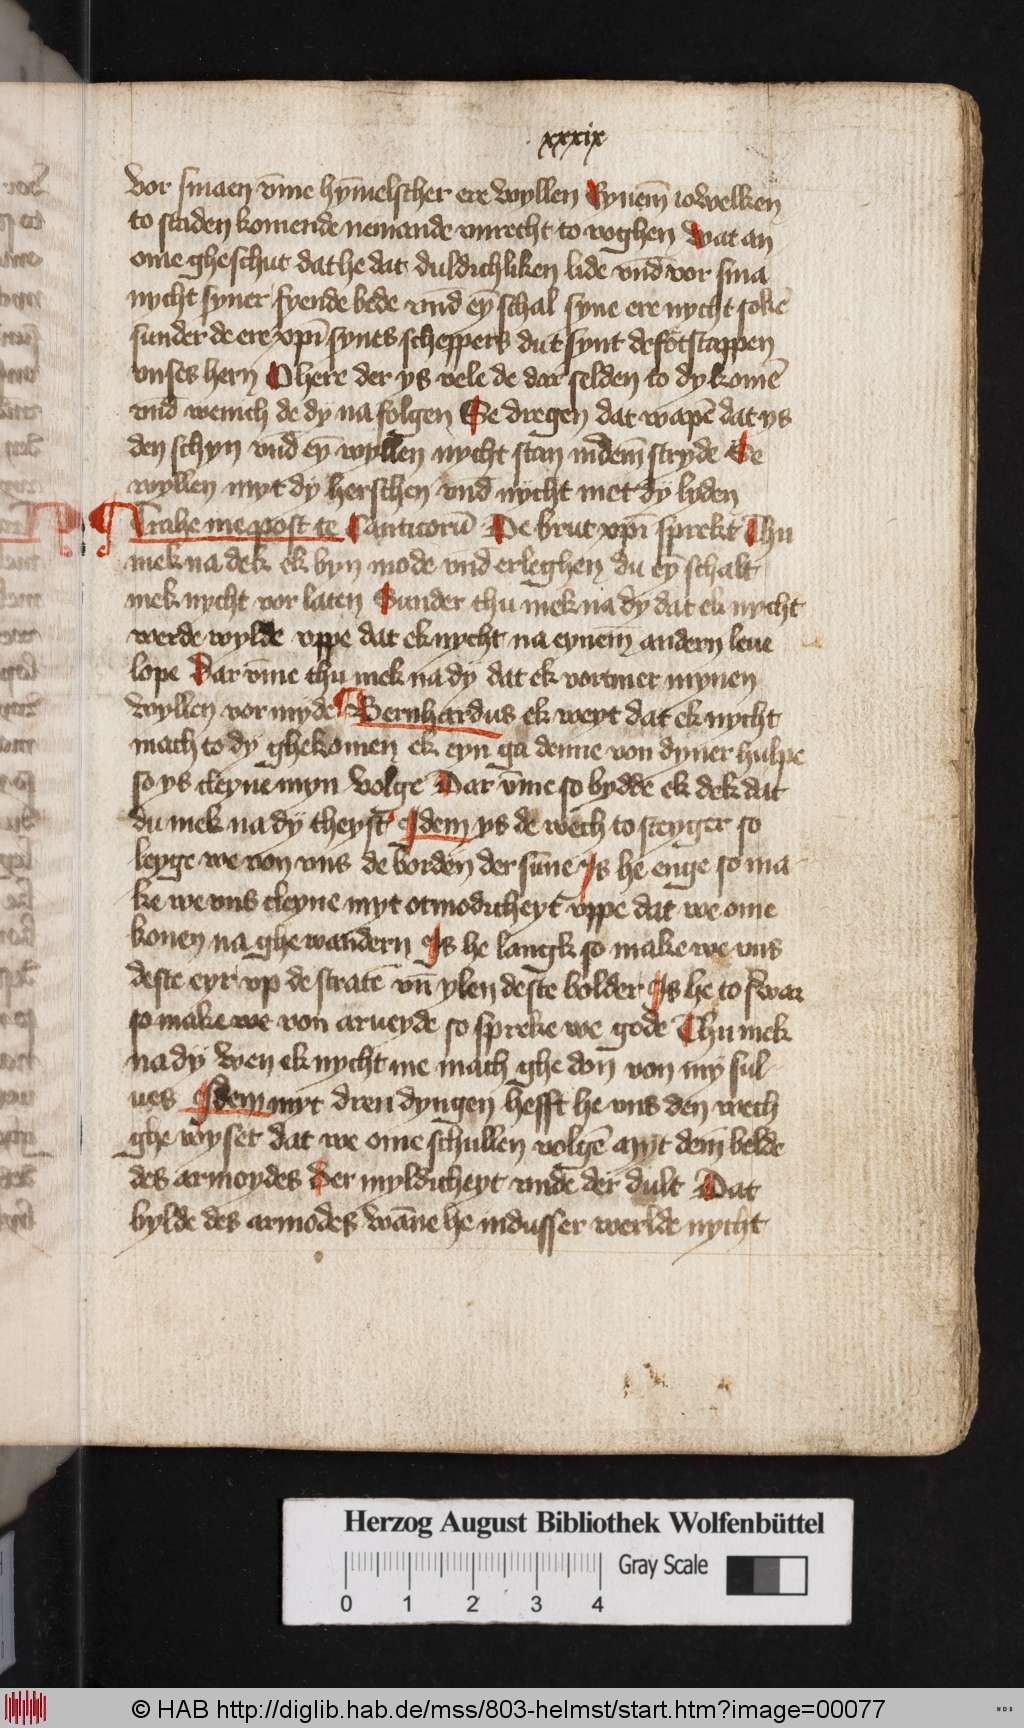 xxxix
vor smaen vm̄e hȳmelscher ere wyllen Eynem̄ iowelken
to staden komende nemande vnrecht to voghen Wat an
ome gheschut dat he dat duldichliken lide vnd̄ vor sma
nycht syner fyende bede vnd̄ eȳ schal syne ere nycht sokē
sunder de ere xp̄i synes scheppers dut synt de fotstappen
vnses hern O here der ys vele de dar selden to dy komē
vnd̄ wenich de dy na folgen Se dregen dat wapē dat ys
den schyn vnd eȳ wyllen nycht stan in dem̄ stryde Se
wyllen myt dy herschen vnd nycht met dy lyden
Trahe me post te Canticorū De brut xp̄i sprekt Thu
mek na dek ek byn mode vnd erleghen du eȳ schalt
mek nycht vor laten Sunder thu mek na dy dat ek nycht
werde wylde vppe dat ek nycht na eynem̄ andern leue
lope Dar vm̄e thu mek na dy dat ek vortmer mynen
wyllen vor myde Bernhardus ek weyt dat ek nycht
mach to dy ghekomen ek eyn ga denne von dyner hulpe
so ys cleyne myn volge Dar vm̄e so bydde ek dek dat
du mek na dy theyst Idem ys de wech to steyger so
leyge we von vns de borden der sūne Is he enge so ma
ke we vns cleyne myt otmodicheyt vppe dat we ome
konen na ghewandern Is he langk so make we vns
deste eyr vp de stratē vn̄ ylen deste bolder Is he to swar
so make we von arueyde so spreke we gode Thu mek
na dy wen ek nycht me mach ghe don von my sul
ues Idem myt dren dyngen hefft he vns den wech
ghe wyset dat we ome schullen volgē myt dem̄ belde
des armoydes Der myldicheyt vnde der dult Dat
bylde des armodes wāne he in dusser werlde nycht
Herzog August Bibliothek Wolfenbüttel
Gray Scale
0 1 2 3 4
© HAB http://diglib.hab.de/mss/803-helmst/start.htm?image=00077